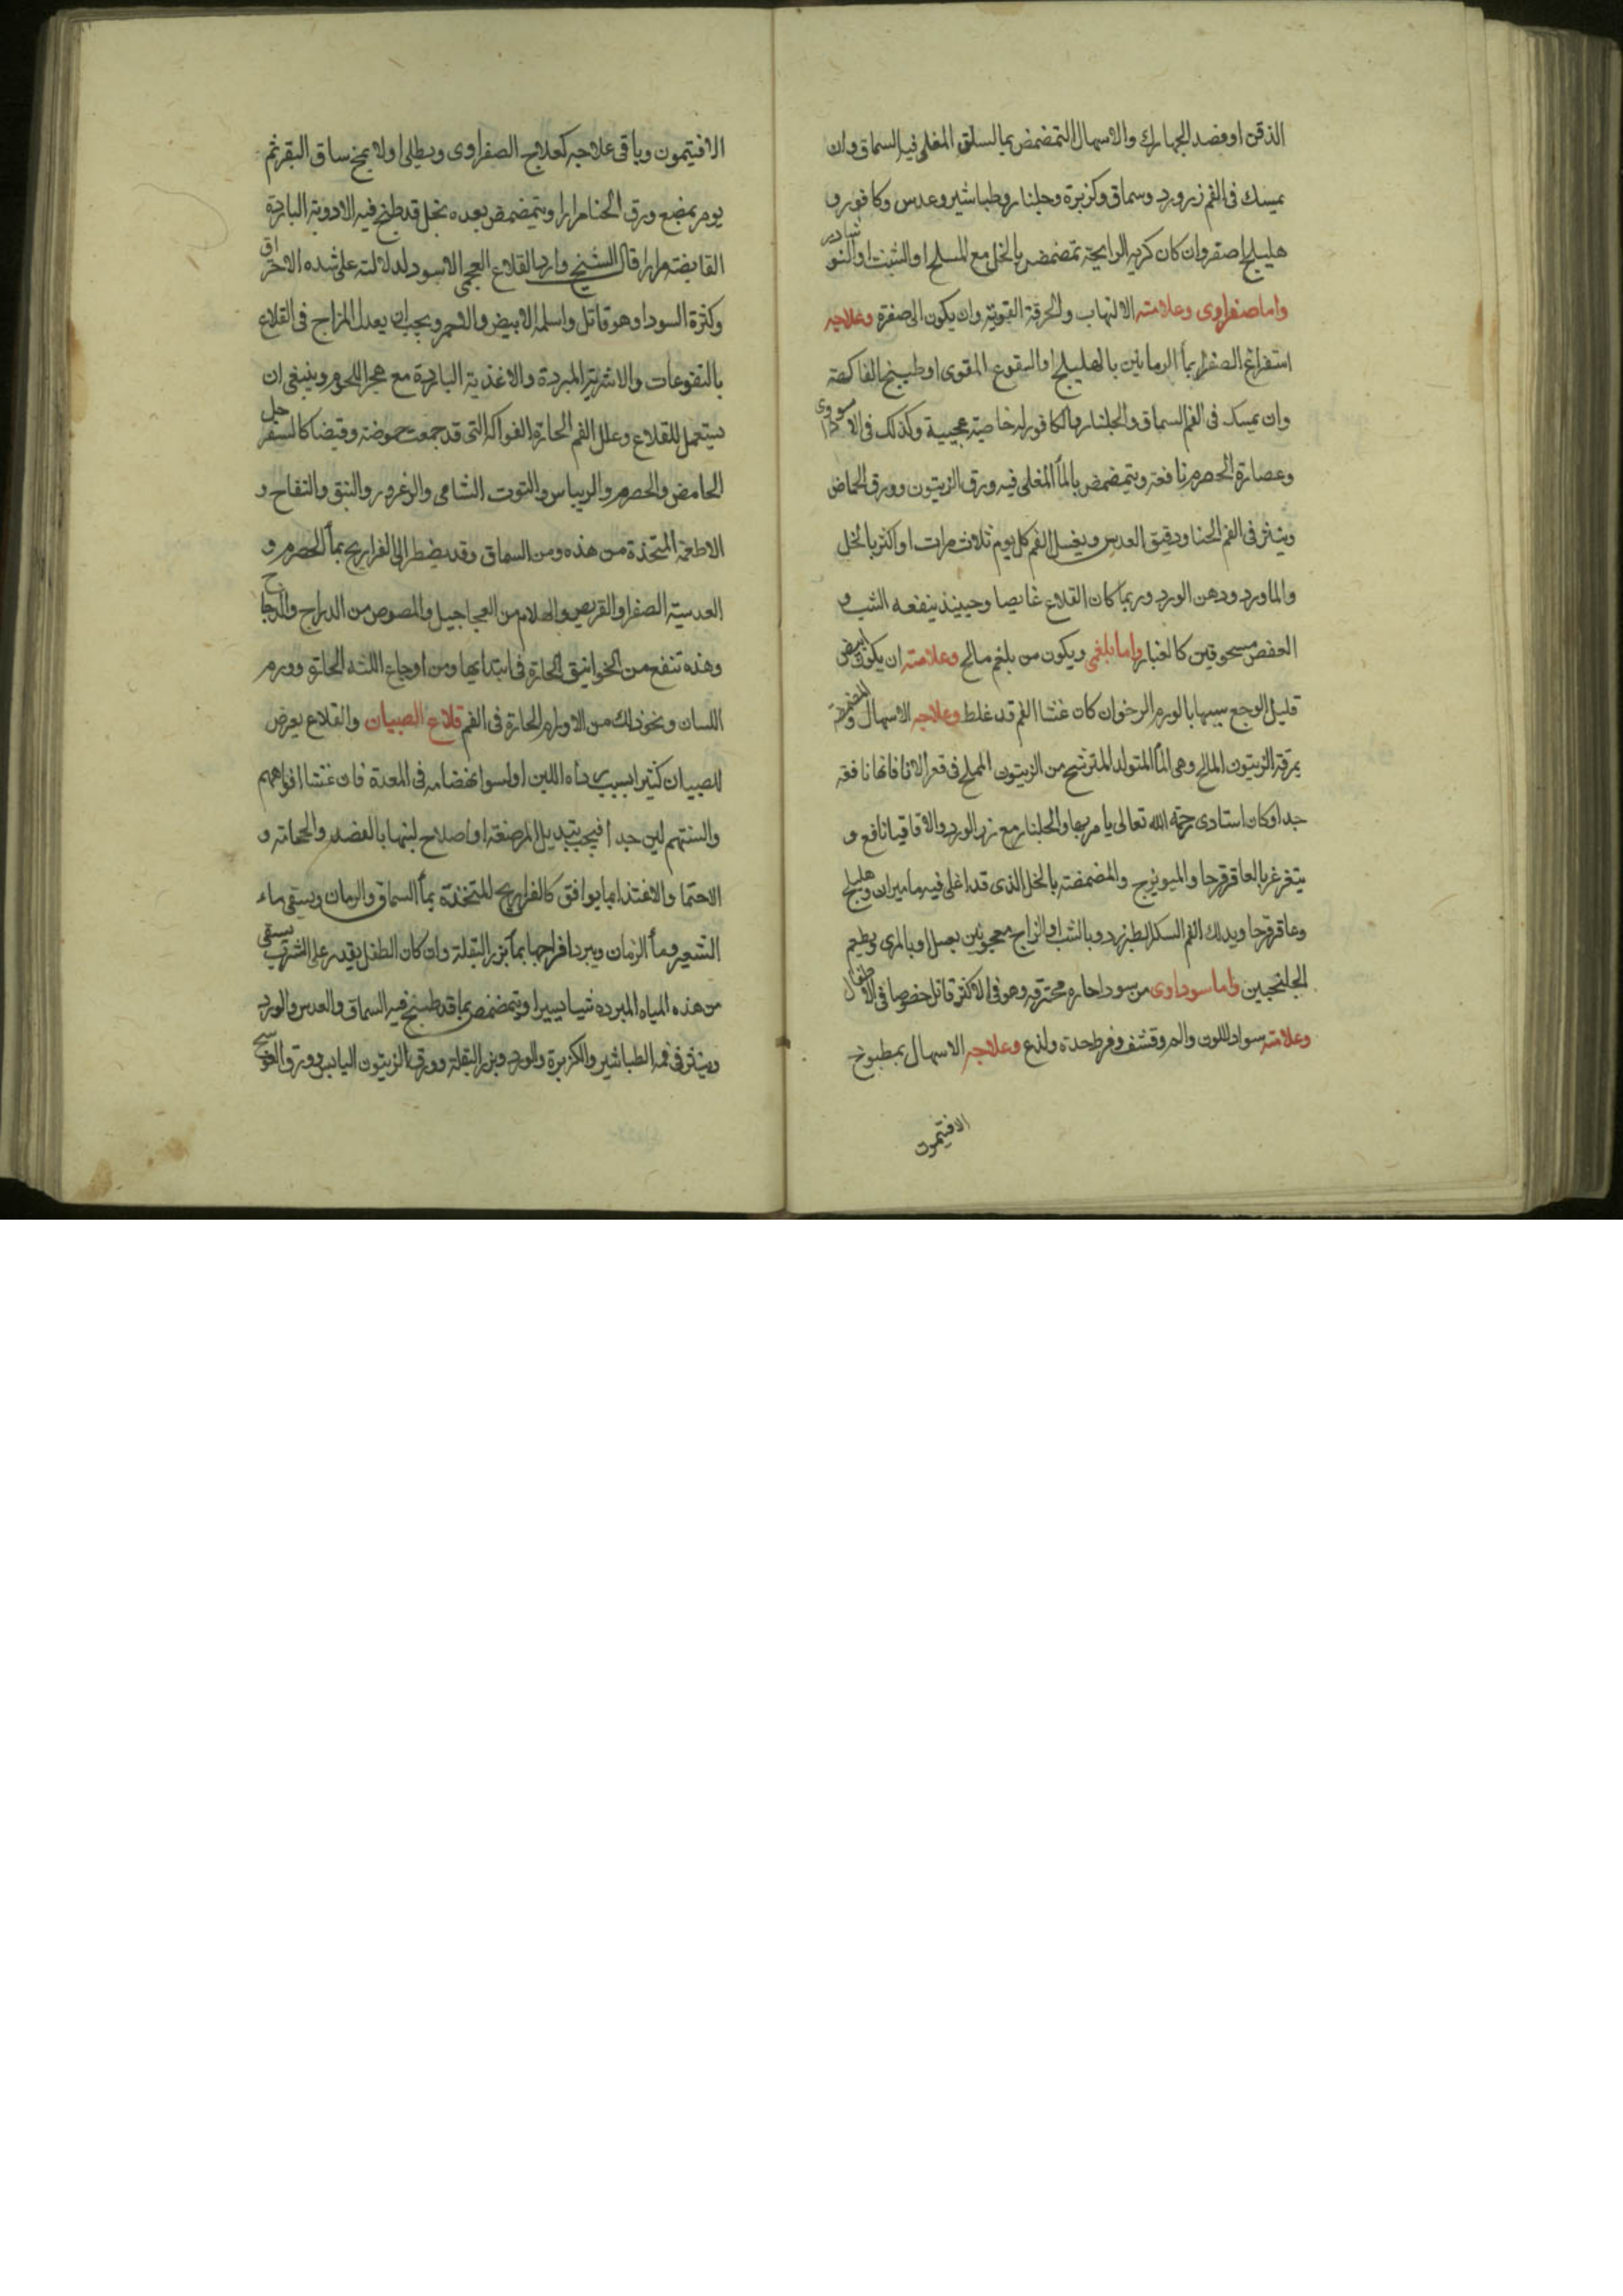 الذقن او فصد الجهارك والاسهال التمضمض بما السلق المغلى فيه السماق وان
يمسك فى الفم زر ورد وسماق وكزبرة وجلنار وطباشير وعدس وكافور و
هليلج اصفر وان كان كريه الرايحة تمضمض بالخل مع الملح او الشبث او النوشادر
واما صفراوى وعلامته الالتهاب والحرقة القوية وان يكون الى صفرة وعلاجه
استفراغ الصفرا بمأ الرمانين بالهليلج او النقوع المقوى او طبيخ الفاكهة
وان يمسك فى الفم السماق والجلنار والكافور له خاصية عجيبة وكذلك فى الاسودى
وعصارة الحصرم نافعة ويتمضمض بالمأ المغلى فيه ورق الزيتون وورق الحماض
وينثر فى الفم الحنا ودقيق العدس ويغسل الفم كل يوم ثلاث مرات او اكثر بالخل
والماورد ودهن الورد وربما كان القلاع غايصا وحيينذ ينفعه الشب و
العفص مسحوقين كالغبار واما بلغمى ويكون من بلغم مالح وعلامته ان يكون ابيض
قليل الوجع شبيها بالورم الرخو ان كان غشا الفم قد غلظ وعلاجه الاسهال والمضمضة
بمرقة الزيتون المالح وهى المأ المتولد المترشح من الزيتون المملح فى قعر الانا فانها نافعة
جدا وكان استادى رحمة الله تعالى يامر بها والجلنار مع زر الورد والاقاقيا نافع و
يتغرغر بالعاقرقرحا والميويزج والمضمضة بالخل الذى قد اغلى فيه ماميران وهليلج
وعاقرقرحا ويدلك الفم السكر الطبرزد وبالشب او الزاج معجونين بعسل او بالمرى ويطعم
الجلنجبين واما سوداوى من سودا حارة محترقة وهو فى الاكثر قاتل خصوصا فى الاطفال
وعلامته سواد اللون والم وقشف وفرط حدة ولذع وعلاجه الاسهال بمطبوخ
الافتيمون
الافتيمون وباقى علاجه كعلاج الصفراوى ويطلى اولا بمخ ساق البقر ثم
يومر بمضغ ورق الحنا مرارا ويتمضمض بعده بخل قد طبخ فيه الادوية الباردة
القابضة مرارا قال الشيخ واردا القلاع الفحمى الاسود لدلالته على شدة الاحتراق
وكثرة السودا وهو قاتل واسلمه الابيض والاحمر ويجب ان يعدل المزاج فى القلاع
بالنقوعات والاشربة المبردة والاغذية الباردة مع هجر اللحوم وينبغى ان
يستعمل للقلاع وعلل الفم الحارة الفواكه التى قد جمعت حموضة وقبضا كالسفرجل
الحامض والحصرم والريباس والتوت الشامى والزعرور والنبق والتفاح و
الاطعمة المتخذة من هذه ومن السماق وقد يضطر الى الفراريج بمأ الحصرم و
العدسية الصفرا والقريص والهلام من العجاجيل والمصوص من الدراج والدجاج
وهذه تنفع من الخوانيق الحارة فى ابتدايها ومن اوجاع اللثة الحارة وورم
اللسان ونحو ذلك من الاورام الحارة فى الفم قلاع الصبيان والقلاع يعرض
للصبيان كثيرا بسبب رداه اللبن او لسوا انهضامه فى المعدة فان غشا افواههم
والسنتهم لين جدا فيجب تبديل المرضعة او اصلاح لبنها بالفصد والحجامة و
الاحتما والاغتذا بما يوافق كالفراريج المتخذة بمأ السماق والرمان ويسقى ماء
الشعير ومأ الرمان ويبرد مزاجها بمأ بزر البقلة وان كان الطفل يقدر على الشرب يسقى
من هذه المياه المبردة شيا يسيرا ويتمضمض بما قد طبخ فيه السماق والعدس والورد
وينثر فى فمه الطباشير والكزبرة والورد وبزر البقلة وورق الزيتون اليابس وورق العوسج